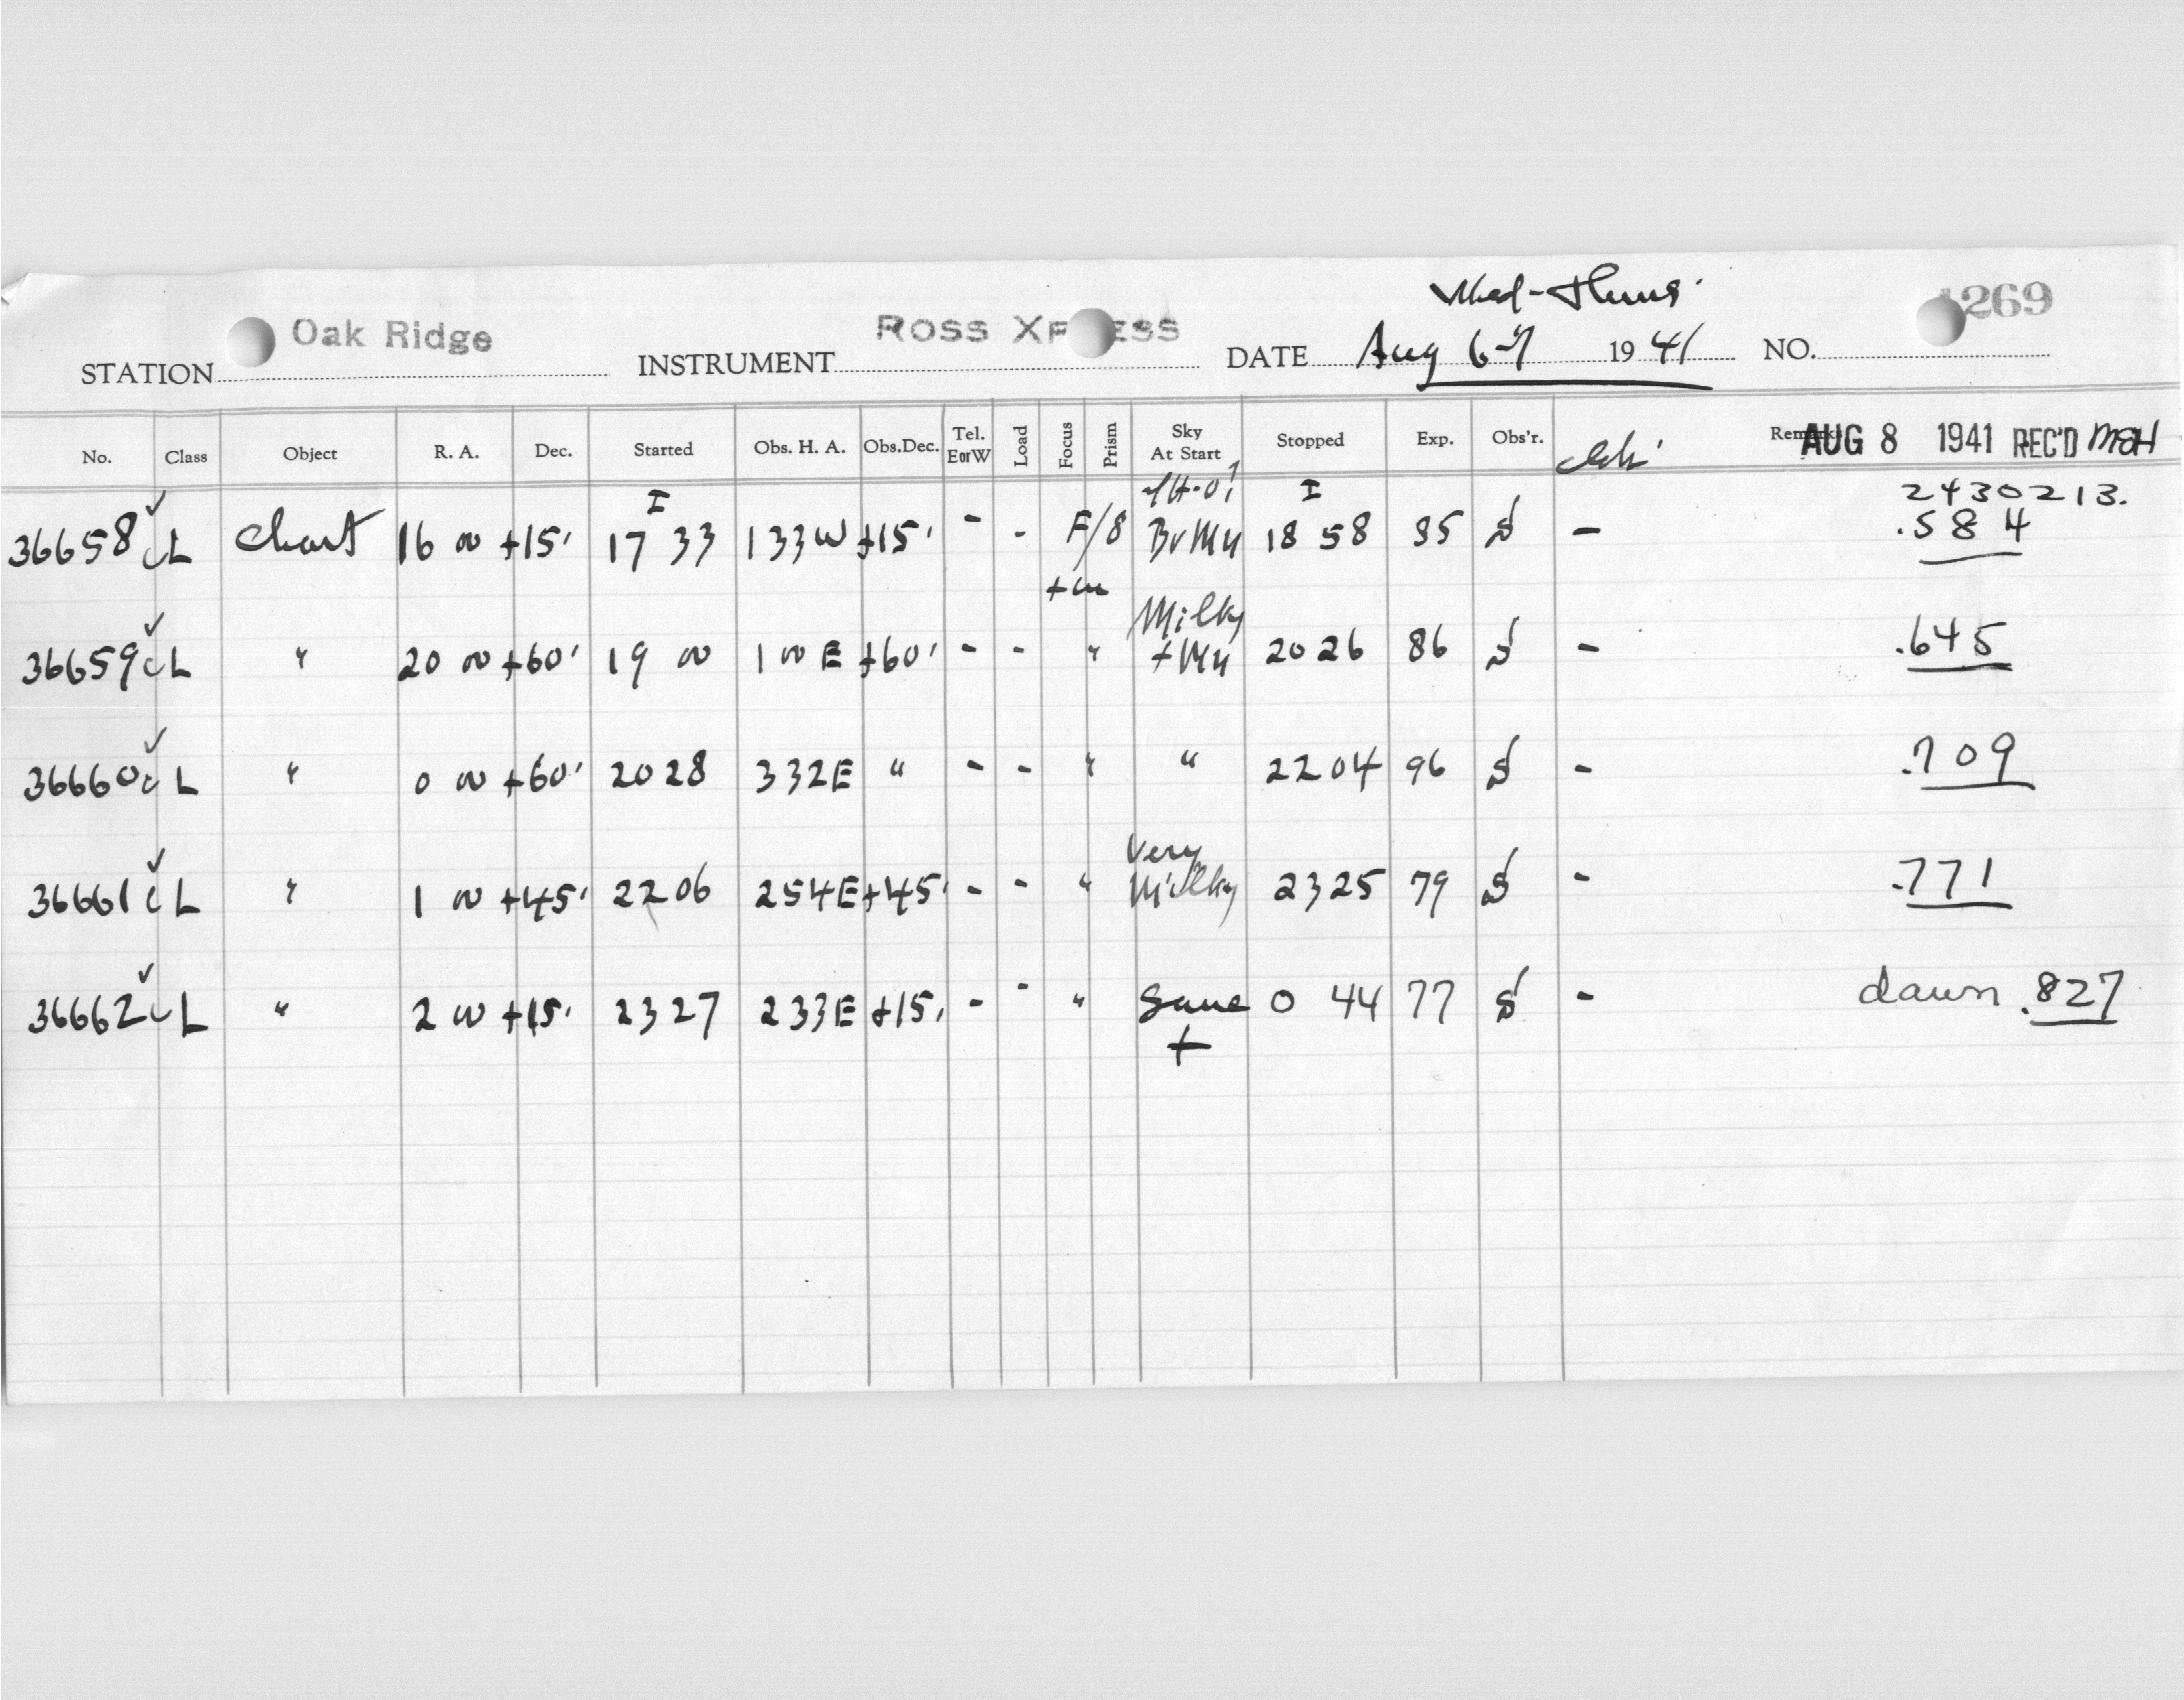 Wed-Thurs.
269
Oak Ridge ROSS
STATION INSTRUMENT DATE Aug 6-7 1941 NO.
No. Class Object R. A. Dec. Started Obs. H. A. Obs.Dec. Tel. EorW Load Focus Prism Sky At Start Stopped Exp. Obs'r. Remarks AUG 8 1941 REC'D MBH
I I 2430213.
36658 CL Chart 16 00 +15' 17 33 133W +15' - - F/8 18 58 85 S - .584
Milky
36659 CL " 20 00 +60' 19 00 1 00 E +60' - - " 20 26 86 S - .645
36660 CL " 0 00 +60' 20 28 332E " - - " " 22 04 96 S - .709
Very
36661 CL " 1 00 +45' 22 06 254E +45' - - " Milky 23 25 79 S - .771
36662 CL " 2 00 +15' 23 27 233E +15' - - " Same 0 44 77 S - dawn .827
+